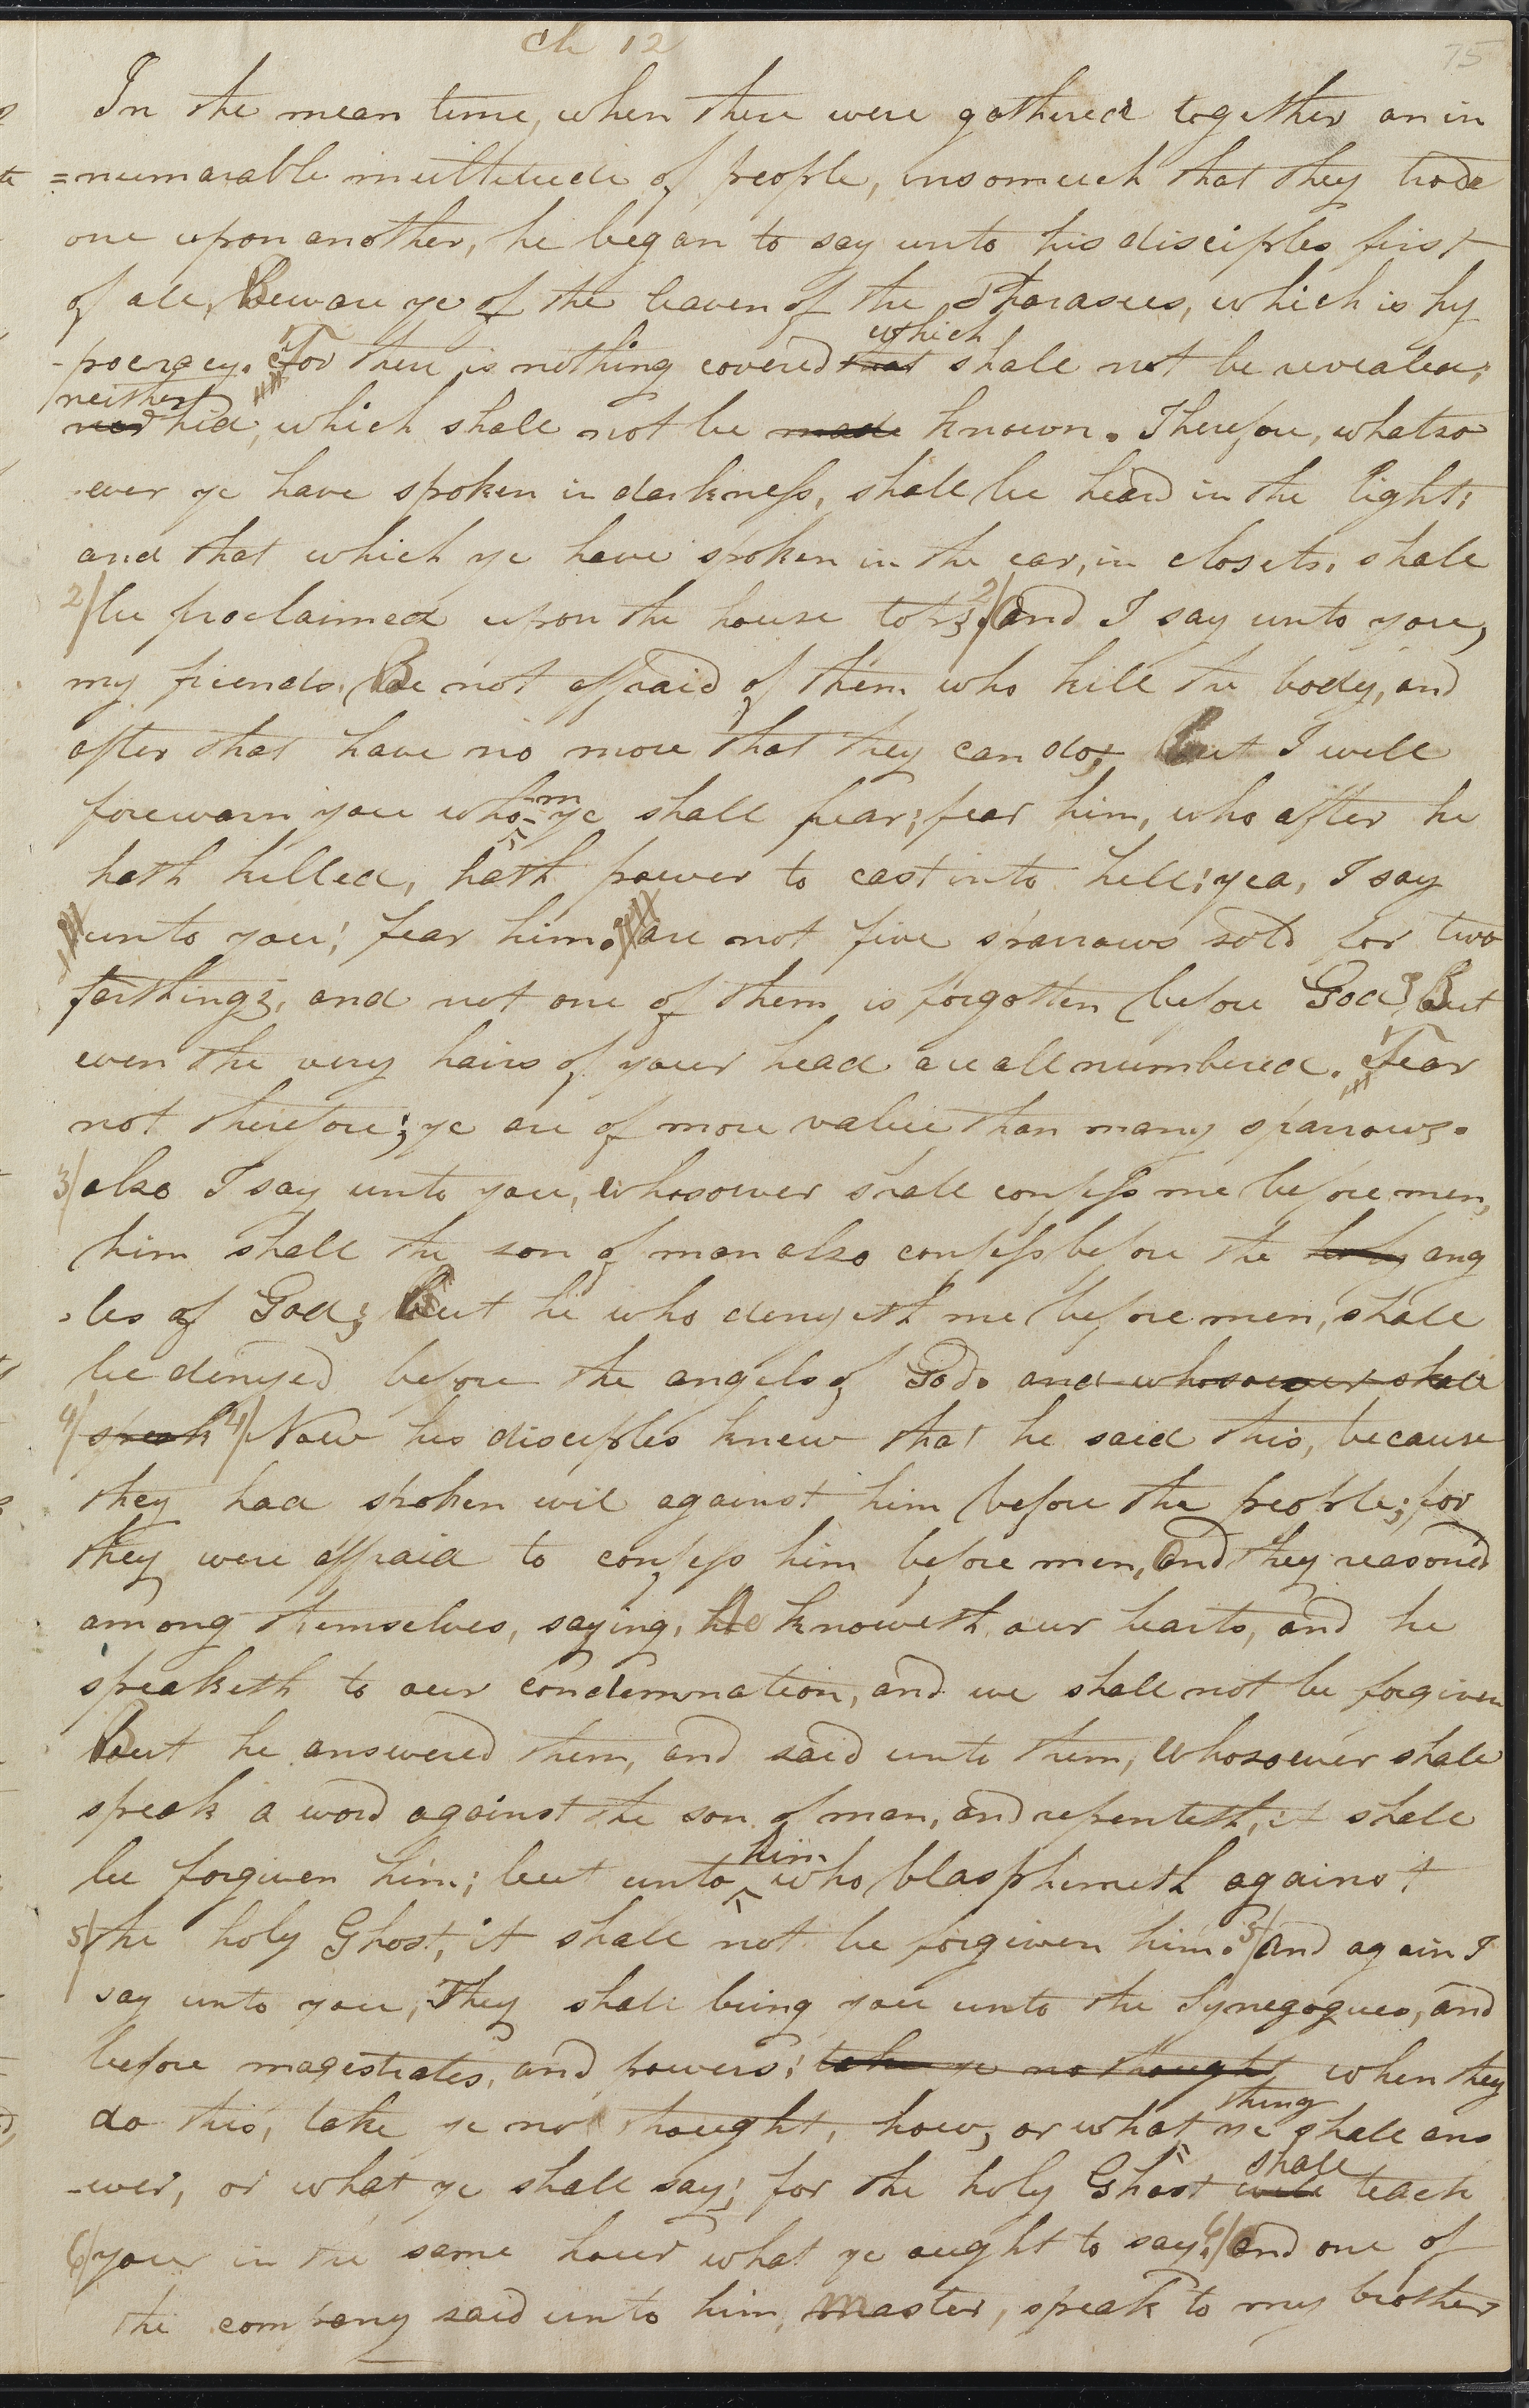 Ch 12
75
In the mean time, when there were gathered together an in
=numarable multitude of people, insomuch that they trode
one upon another, he began to say unto his disciples first
of all, Beware ye of the leaven of the Pharasees, which is hy
-pocracy. For there is nothing covered that which shall not be revealed;
nor neither hid, which shall not be made known. Therefore, whatso
-ever ye have spoken in darkness, shall be heard in the light;
and that which ye have spoken in the ear, in closets, shall
2/ be proclaimed upon the house tops. 2/ And I say unto you,
my friends, Be not affraid of them who kill the body, and
after that have no more that they can do; But I will
forewarn you whom ye shall fear; fear him, who after he
hath killed, hath power to cast into hell; yea, I say
unto you; fear him. are not five sparrows sold for two
farthings, and not one of them is forgotten before God? But
even the very hairs of your head are all numbered. Fear
not therefore; ye are of more value than many sparrows.
3/ also I say unto you, Whosoever shall confess me before men,
him shall the son of man also confess before the holy ang
-les of God; But he who denyeth me before men, shall
be denyed before the angels of God. and whosoever shall
4/ speak 4/ Now his disciples knew that he said this, because
they had spoken evil against him before the people; for
they were affraid to confess him before men, and they reasoned
among themselves, saying, He knoweth our hearts, and he
speaketh to our condemnation, and we shall not be forgiven
But he answered them, and said unto them, Whosoever shall
speak a word against the son of man, and repenteth, it shall
be forgiven him; but unto him who blasphemeth against
5/ the holy Ghost, it shall not be forgiven him. 5/ And again I
say unto you, They shall bring you unto the Synegogues, and
before magestrates, and powers; take ye no thought when they
do this, take ye no thought, how, or what thing ye shall ans
-wer, or what ye shall say; for the holy Ghost will shall teach
6/ you in the same hour what ye ought to say. 6/ And one of
the company said unto him, Master, speak to my brother